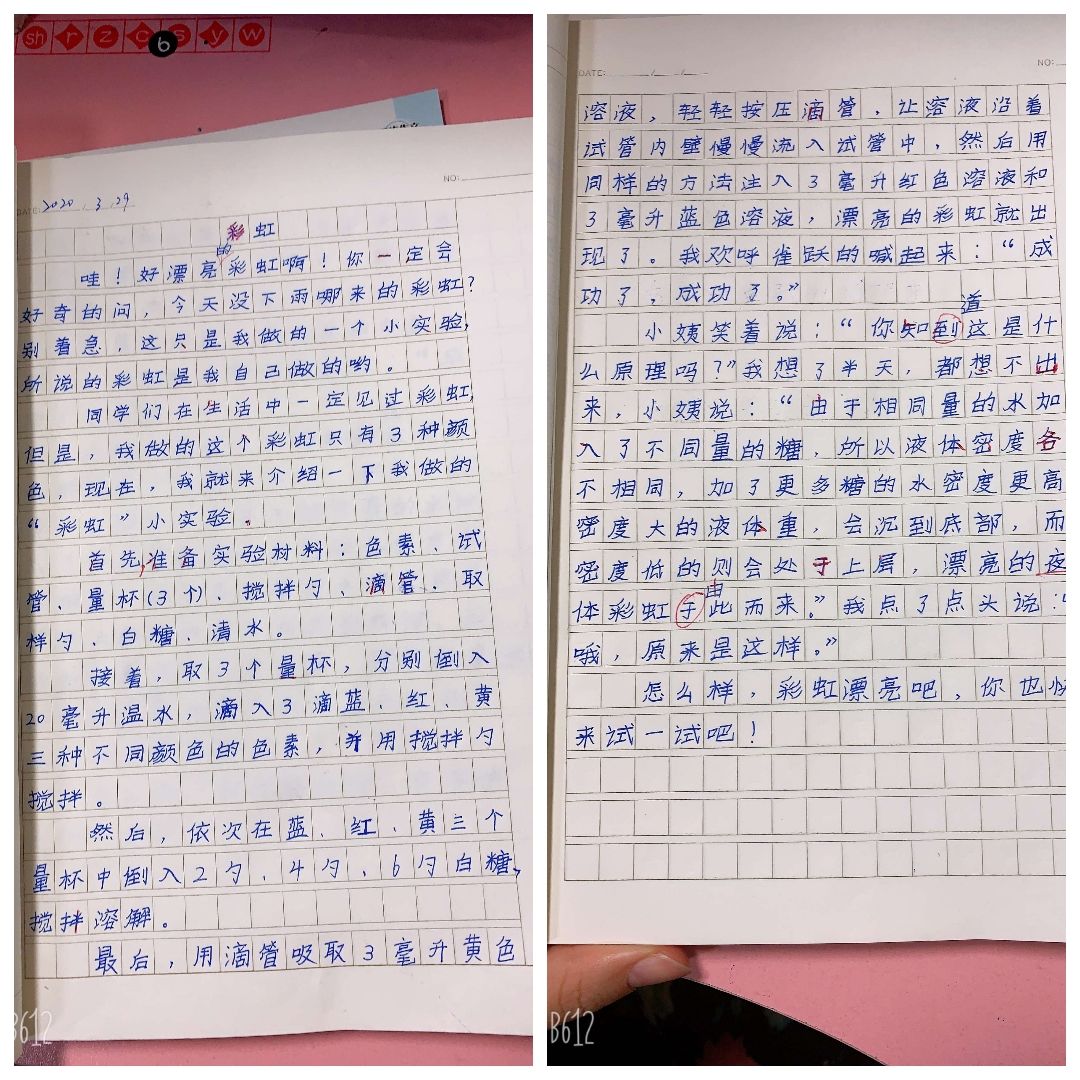 sh r z c s y w
6
NO:
DATE: 2020.3.29
彩虹
的
哇！好漂亮彩虹啊！你一定会
好奇的问，今天没下雨哪来的彩虹？
别着急，这只是我做的一个小实验，
所说的彩虹是我自己做的哟。
同学们在生活中一定见过彩虹，
但是，我做的这个彩虹只有3种颜
色，现在，我就来介绍一下我做的
“彩虹”小实验.
首先,准备实验材料：色素、试
管、量杯(3个)、搅拌勺、滴管、取
样勺、白糖、清水。
接着，取3个量杯，分别倒入
20毫升温水，滴入3滴蓝、红、黄
三种不同颜色的色素，并用搅拌勺
搅拌。
然后，依次在蓝、红、黄三个
量杯中倒入2勺、4勺、6勺白糖，
搅拌溶解。
最后，用滴管吸取3毫升黄色
B612
DATE: / /
NO:
溶液，轻轻按压滴管，让溶液沿着
试管内壁慢慢流入试管中，然后用
同样的方法注入3毫升红色溶液和
3毫升蓝色溶液，漂亮的彩虹就出
现了。我欢呼雀跃的喊起来：“成
功了，成功了。”
道
小姨笑着说：“你知到这是什
么原理吗？”我想了半天，都想不出
来，小姨说：“由于相同量的水加
入了不同量的糖，所以液体密度各
不相同，加了更多糖的水密度更高
密度大的液体重，会沉到底部，而
密度低的则会处于上层，漂亮的夜
由
体彩虹于此而来。”我点了点头说：“
哦，原来是这样。”
怎么样，彩虹漂亮吧，你也快
来试一试吧！
B612